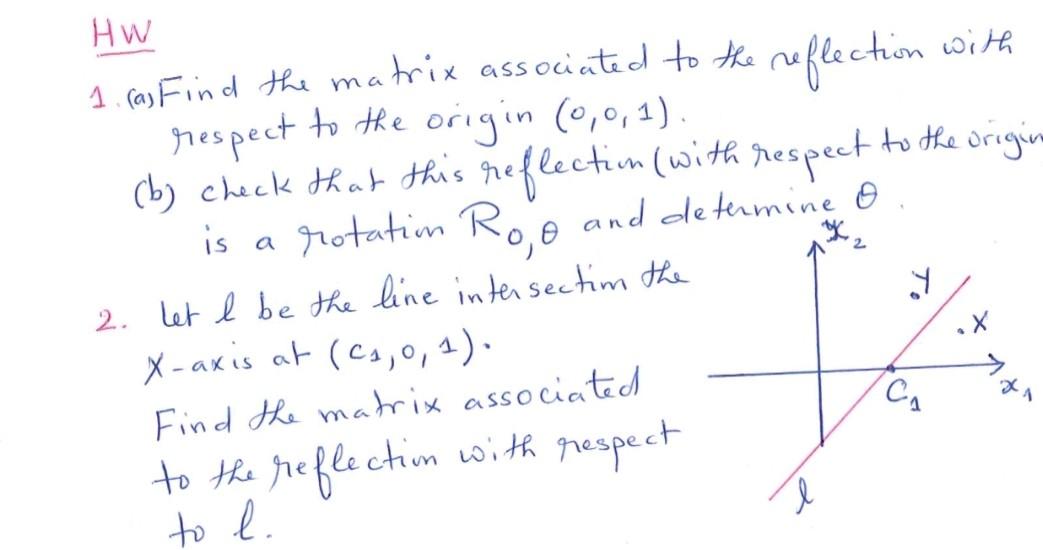 HW
1. (a) Find the matrix associated to the reflection with
respect to the origin (0,0,1).
(b) check that this reflection (with respect to the origin
is a rotation R₀,θ and determine θ.
2. Let l be the line intersectim the
X-axis at (C₁,0,1).
Find the matrix associated
to the reflection with respect
to l.
x₂
.Y
.X
C₁
x₁
l